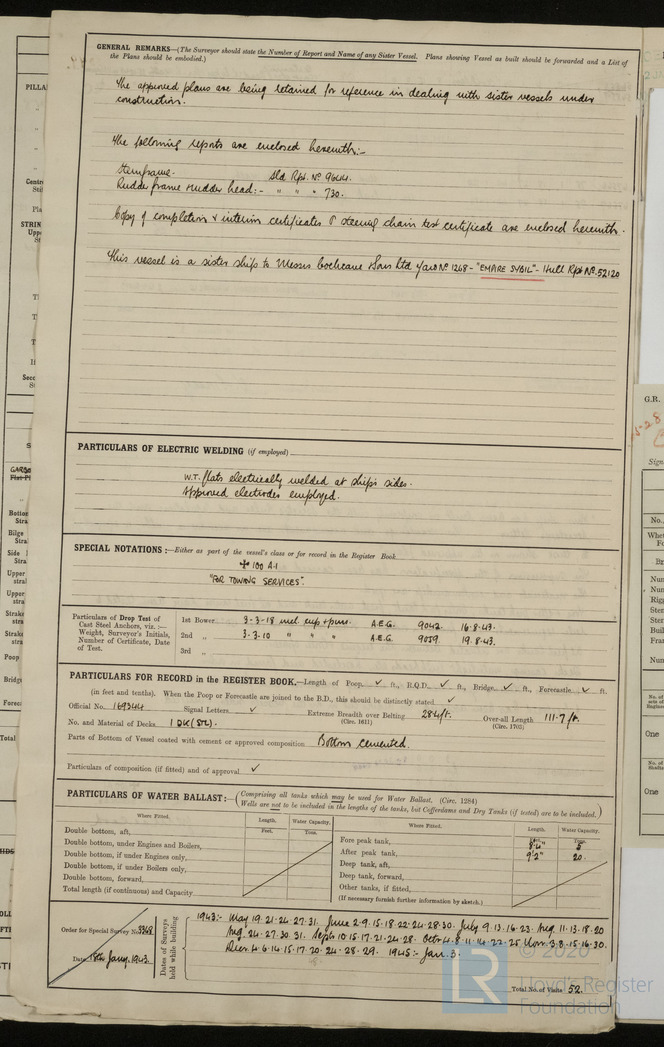 GENERAL REMARKS—(The Surveyor should state the Number of Report and Name of any Sister Vessel. Plans showing Vessel as built should be forwarded and a List of
the Plans should be embodied.)
The approved plans are being retained for reference in dealing with sister vessels under
construction.
The following reports are enclosed herewith:-
Sternframe. Sld Rpt. No 9644.
Rudder frame & rudder head:- " " " 730.
Copy of completion & interim certificates & steering chain test certificate are enclosed herewith.
This vessel is a sister ship to Messrs Cochrane & Sons Ltd yard No 1268 - "EMPIRE SYBIL" - Hull Rpt No. 52120
PARTICULARS OF ELECTRIC WELDING (if employed)
W.T. flats electrically welded at ship's sides.
Approved electrodes employed.
SPECIAL NOTATIONS :—Either as part of the vessel's class or for record in the Register Book
✠ 100 A.1
"FOR TOWING SERVICES".
Particulars of Drop Test of
Cast Steel Anchors, viz. :—
Weight, Surveyor's Initials,
Number of Certificate, Date
of Test.
1st Bower 3-3-18 A.E.G. 9042. 16.8.43.
2nd " 3-3-10 " " " A.E.G. 9059. 19.8.43.
3rd "
PARTICULARS FOR RECORD in the REGISTER BOOK.—Length of Poop ✓ ft., R.Q.D. ✓ ft., Bridge ✓ ft., Forecastle ✓ ft.
(in feet and tenths). When the Poop or Forecastle are joined to the B.D., this should be distinctly stated ✓
Official No. 169344 Signal Letters ✓ Extreme Breadth over Belting (Circ. 1611) Over-all Length (Circ. 1703) 111.7 ft.
No. and Material of Decks 1 DK (STL).
Parts of Bottom of Vessel coated with cement or approved composition Bottom cemented.
Particulars of composition (if fitted) and of approval ✓
PARTICULARS OF WATER BALLAST:—(Comprising all tanks which may be used for Water Ballast. (Circ. 1284)
Wells are not to be included in the lengths of the tanks, but Cofferdams and Dry Tanks (if tested) are to be included.)
Where Fitted. Length. Water Capacity.
Feet. Tons.
Double bottom, aft,
Double bottom, under Engines and Boilers,
Double bottom, if under Engines only,
Double bottom, if under Boilers only,
Double bottom, forward,
Total length (if continuous) and Capacity
Where Fitted. Length. Water Capacity.
Fore peak tank,
After peak tank, 9'-2" 20.
Deep tank, aft,
Deep tank, forward,
Other tanks, if fitted,
(If necessary furnish further information by sketch.)
Order for Special Survey No. 3368
Date 18th Jany. 1943.
Dates of Surveys
held while building
1943:- May 19. 21. 24. 27. 31. June 2. 9. 15. 18. 22. 24. 28. 30. July 9. 13. 16. 23. Aug. 11. 13. 18. 20
Aug. 24. 27. 30. 31. Sept. 10. 15. 17. 21. 24. 28. Octr. 4. 8. 11. 14. 22. 25. Novr. 3. 8. 15. 16. 30.
Decr. 4. 6. 14. 15. 17. 20. 24. 28. 29. Jan. 3.
Total No. of Visits 52.
LR
© 2020
Lloyd's Register
Foundation